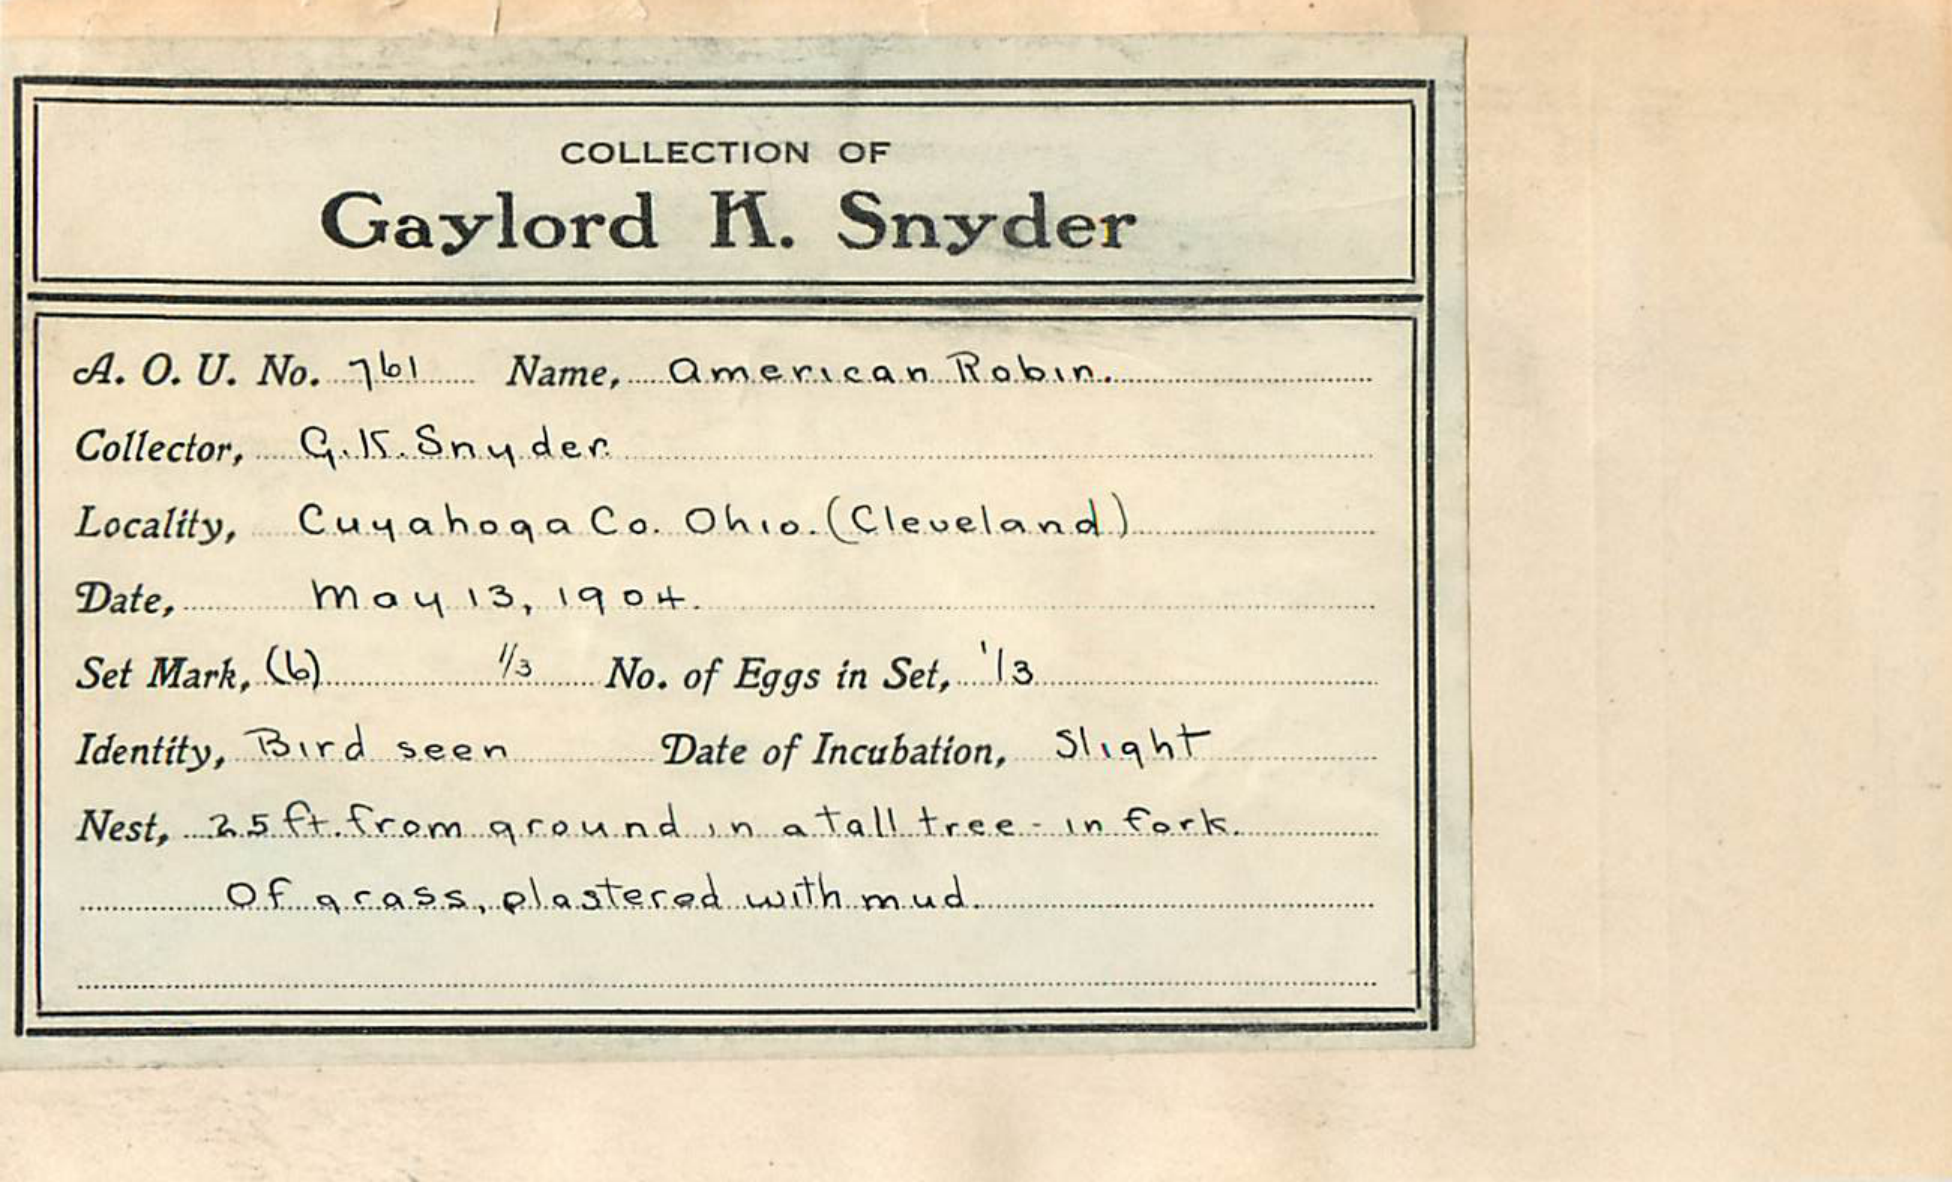 COLLECTION OF
Gaylord K. Snyder
A. O. U. No. 761 Name, American Robin.
Collector, G. K. Snyder.
Locality, Cuyahoga Co. Ohio. (Cleveland)
Date, May 13, 1904.
Set Mark, (b) 1/3 No. of Eggs in Set, 1/3
Identity, Bird seen Date of Incubation, Slight
Nest, 25 ft. from ground in a tall tree - in fork.
Of grass, plastered with mud.